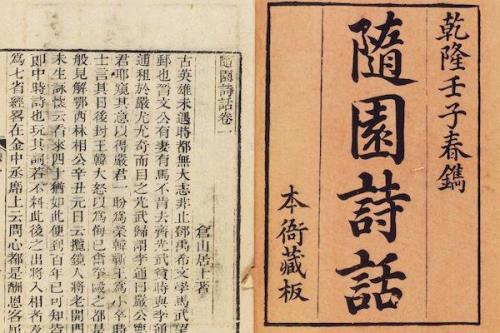 乾隆壬子春鐫
隨園詩話
本衙藏板
隨園詩話卷一
倉山居士著
古英雄未遇時都無大志非止鄧禹希文學馬武望
郵也晉文公有妻有馬不肯去齊光武貧時與李通
逋租於嚴尤尤奇而目之光武歸謂李通曰嚴公寧
君耶窺其意以得嚴君一盼爲榮韓蘄王爲小卒時
士言其日後封王韓大怒以爲侮已奮拳毆之都是
般見解鄂西林相公辛丑元日云攬鏡人將老開門
未生詠懷云看來四十猶如此便到百年已可知皆
郎中時詩也玩其詞若不料此後之出將入相者及
爲七省經略在金中丞席上云問心都是酬恩客